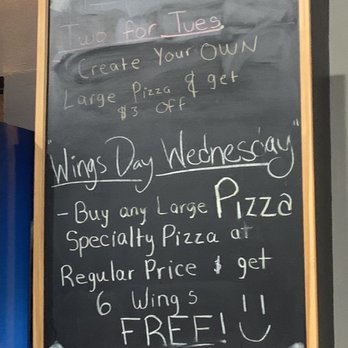 Two for Tues
Create Your OWN
Large Pizza & get
$3 OFF
"Wings Day Wednesday"
- Buy any Large Pizza
Specialty Pizza at
Regular Price & get
6 Wings
FREE! =)